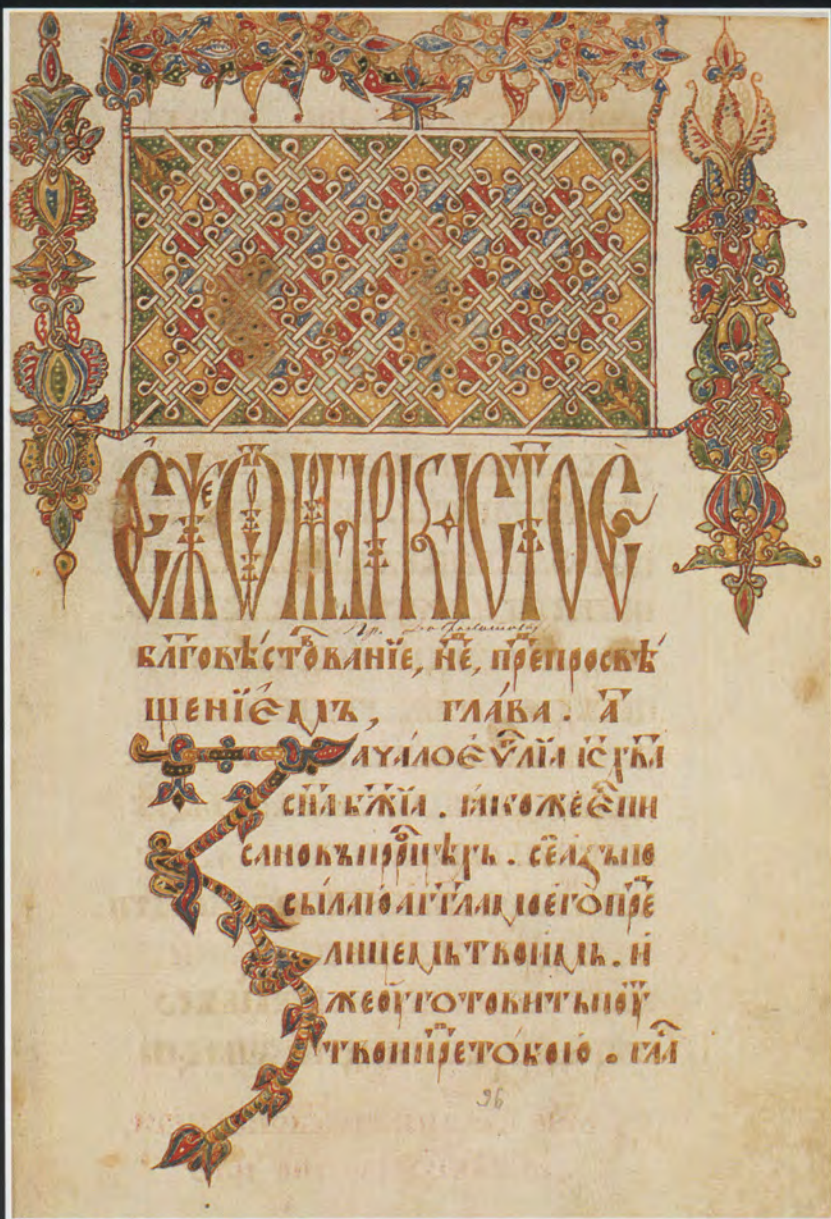 Є҆же Ѿ Марка ст҃ое
бл҃говѣ́ствⷪ҇ванїе, нⷣе, пⷬ҇епросвѣ
щенїемъ, глаⷡ҇ва . а҃
Зачѧ́лоєѵⷢ҇лїꙗ і҆с х҃ва
сн҃а бж҃їа . ꙗкожеєⷭ҇пи
сановъпроⷪ҇цѣхъ . сеазъпо
сылаюагг҃ламоегопреⷣ
лицемьтвоимь . и
жеоуготовитьпоуⷮ
твоипреⷣтобою . гл҃а
96